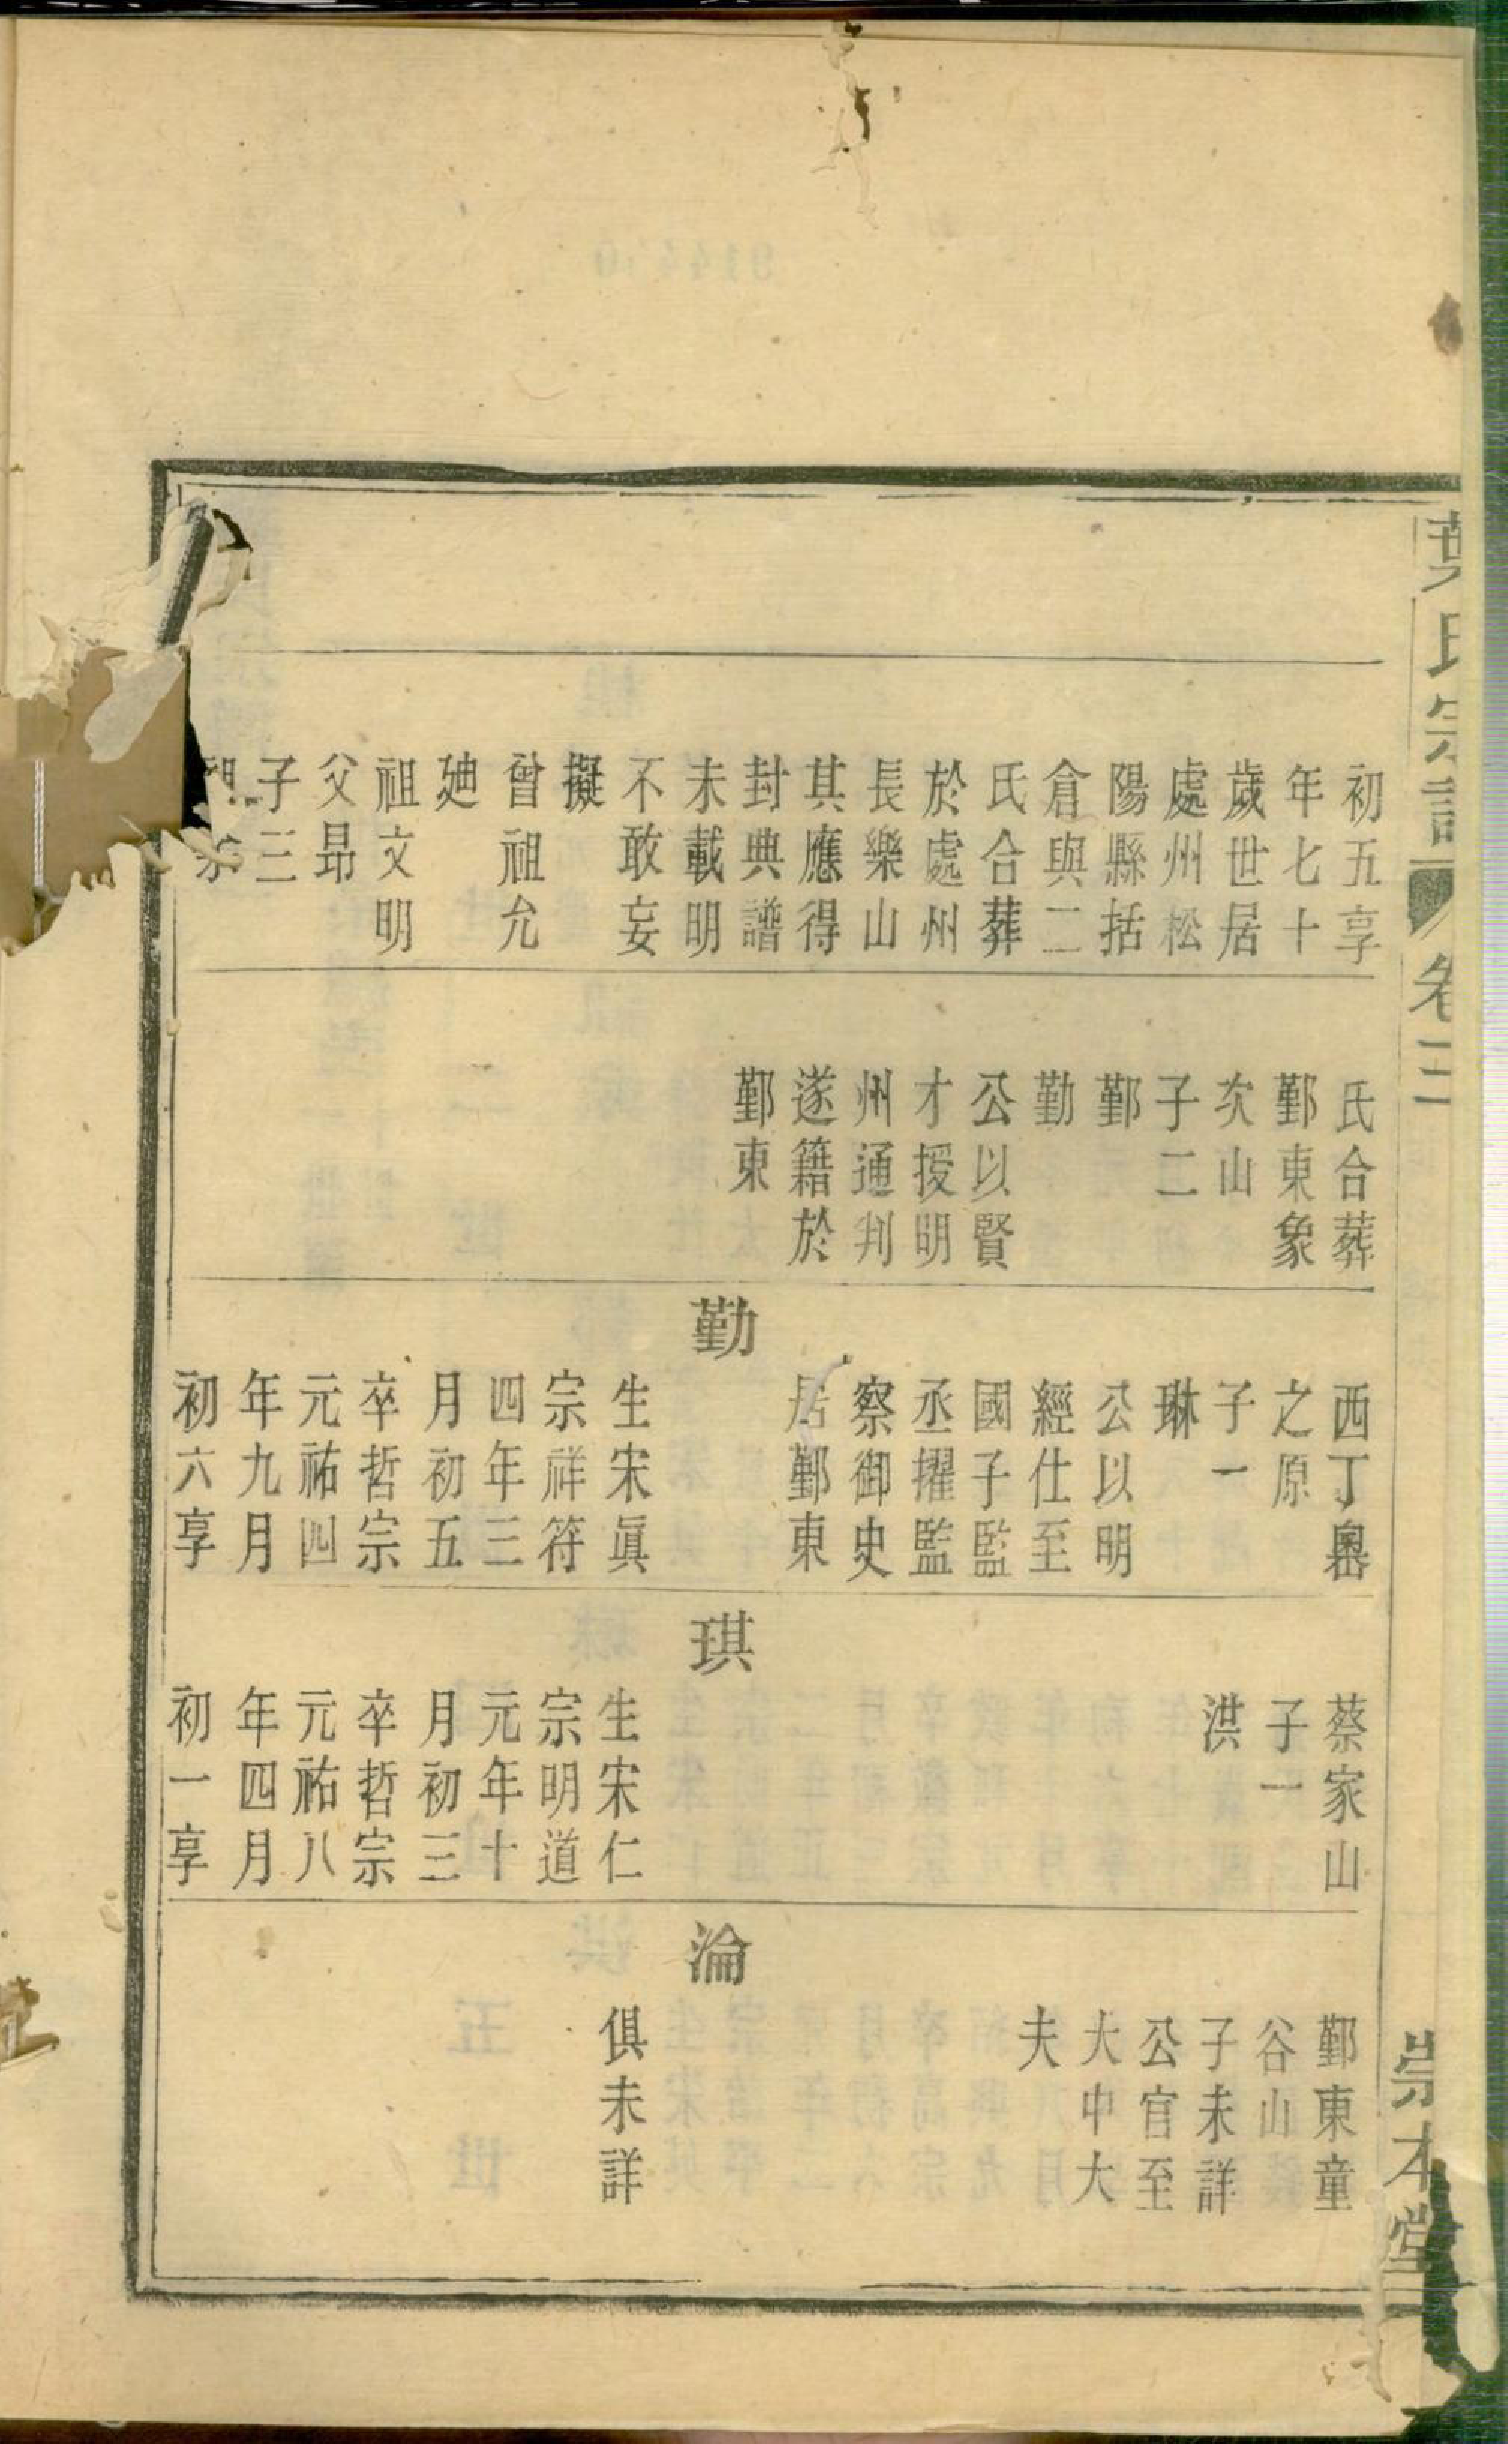 葉氏宗譜
卷二
崇本堂
初五享
年七十
歲世居
處州松
陽縣括
倉與二
氏合葬
於處州
長樂山
其應得
封典譜
未載明
不敢妄
擬
曾祖允
廸
祖文明
父昻
子三
氏合葬
鄞東象
次山
子二
鄞
勤
公以賢
才授明
州通判
遂籍於
鄞東
西丁嶴
之原
子一
琳
公以明
經仕至
國子監
丞擢監
察御史
居鄞東
勤
生宋眞
宗祥符
四年三
月初五
卒哲宗
元祐四
年九月
初六享
蔡家山
子一
洪
琪
生宋仁
宗明道
元年十
月初三
卒哲宗
元祐八
年四月
初一享
鄞東童
谷山
子未詳
公官至
大中大
夫
淪
俱未詳